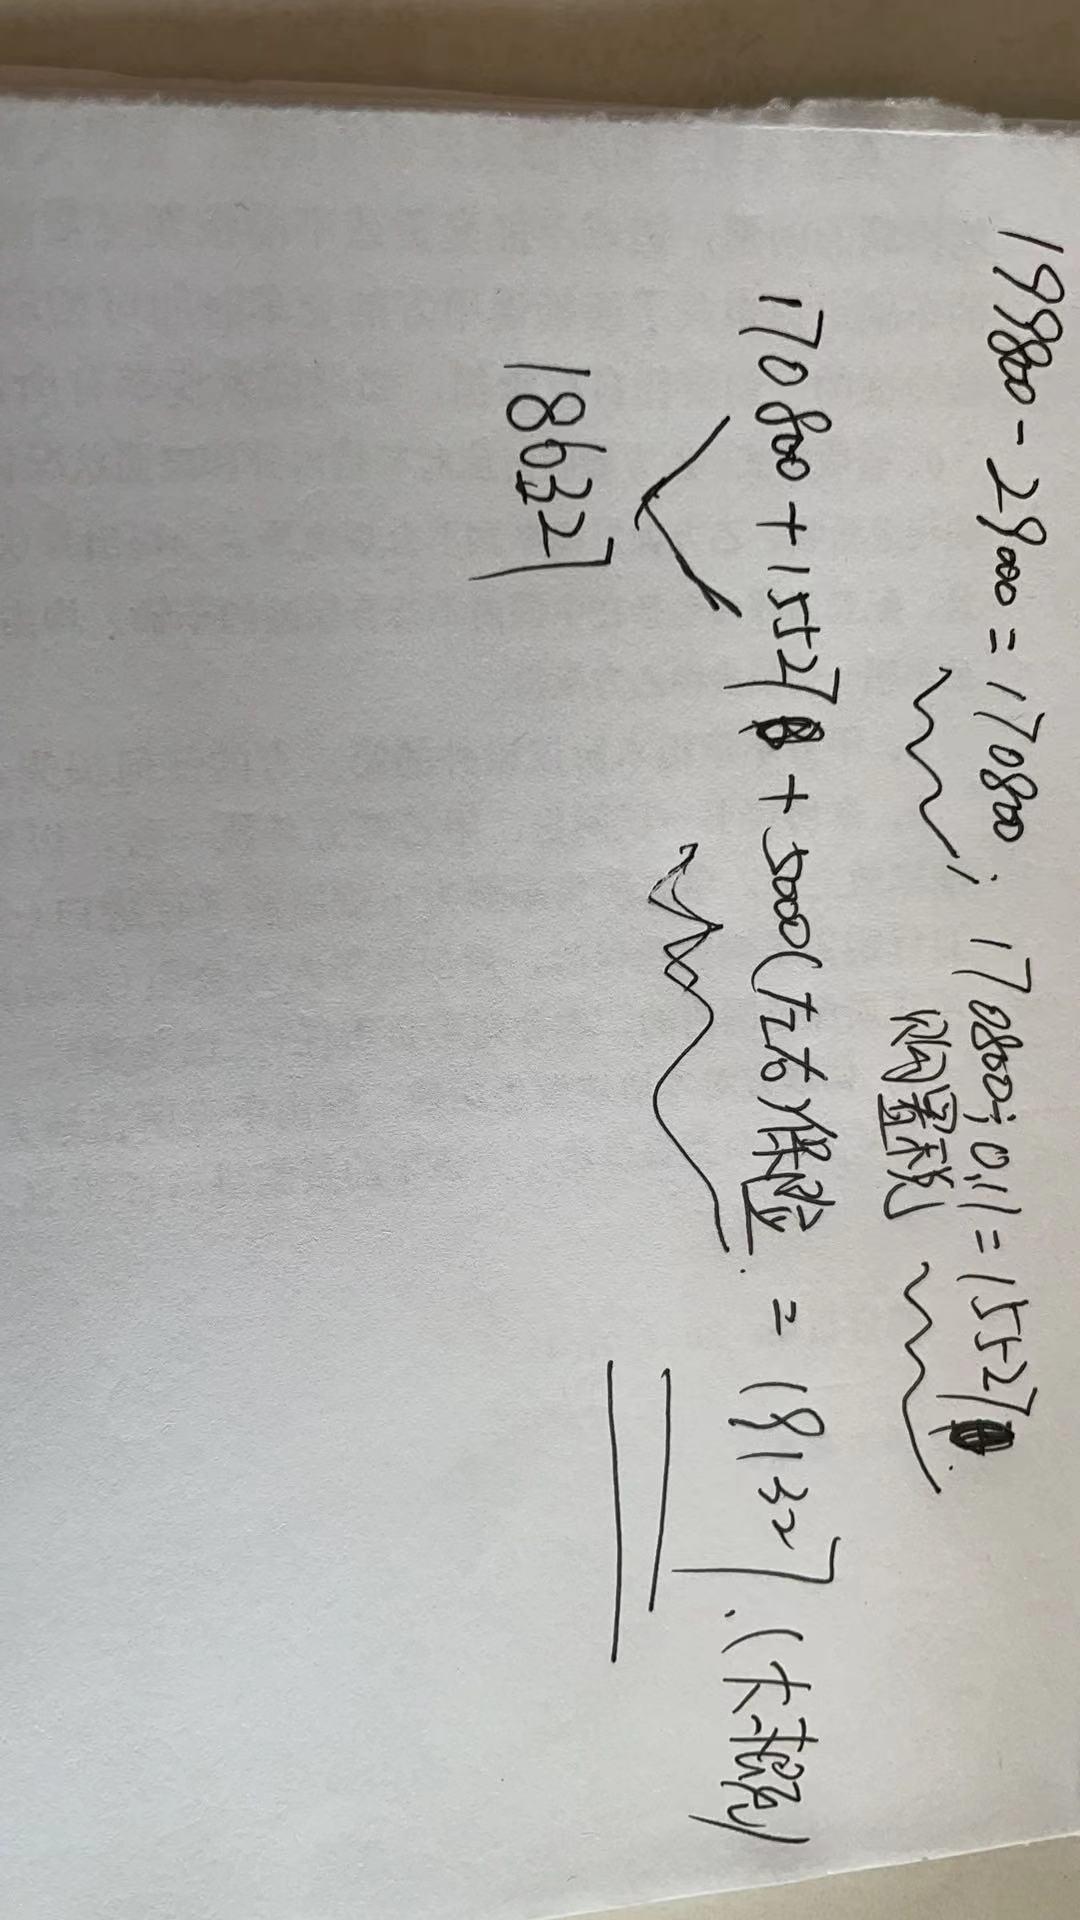 199800-29000=170800; 170800÷0.11=15527
购置税
170800+15527+5000(左右)保险=191327.(大概)
186327